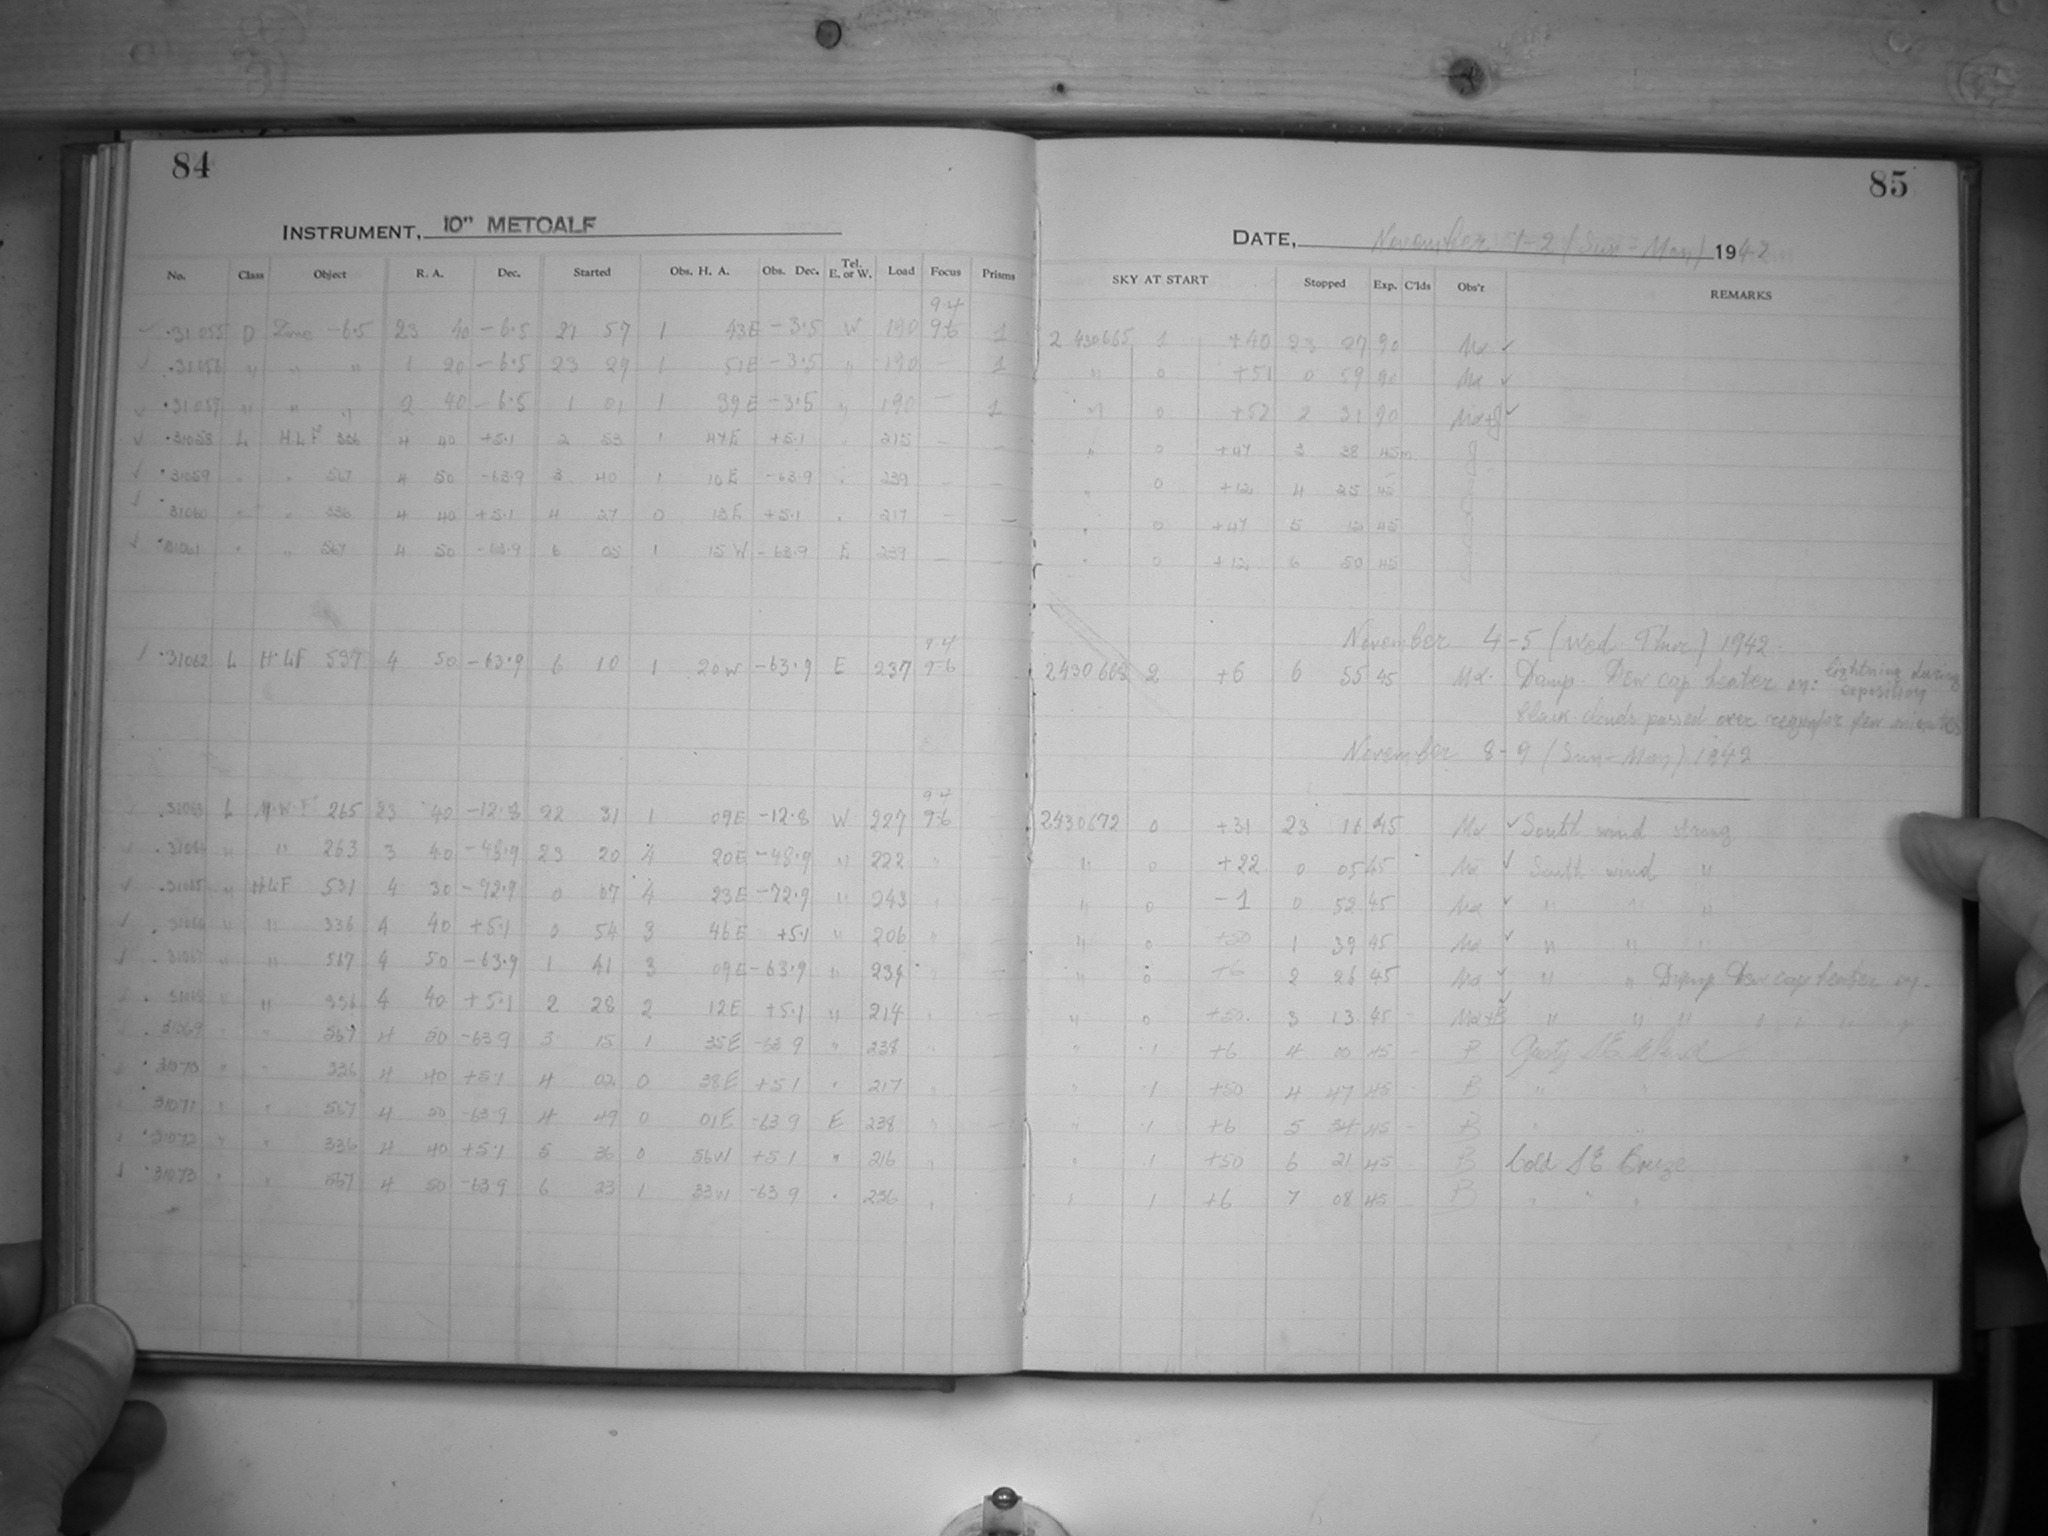 84
INSTRUMENT, 10" METCALF
No. Class Object R. A. Dec. Started Obs. H. A. Obs. Dec. Tel. E. or W. Load Focus Prisms
9.4
31055 D Zone -6.5 23 40 -6.5 21 57 1 43E -3.5 W 190 9.6 1
31056 " " " 1 20 -6.5 23 29 1 51E -3.5 " 190 — 1
31057 " " " 2 40 -6.5 1 01 1 39E -3.5 " 190 — 1
31058 L H.L.F 336 4 40 +5.1 2 53 1 47E +5.1 " 215 — —
31059 " " 567 4 50 -63.9 3 40 1 10E -63.9 " 239 — —
31060 " " 336 4 40 +5.1 4 27 0 13E +5.1 " 217 — —
31061 " " 567 4 50 -63.9 6 05 1 15W -63.9 E 239 — —
9.4
31062 L H.L.F 597 4 50 -63.9 6 10 1 20W -63.9 E 237 9.6
9.4
31063 L 265 23 40 -12.8 22 31 1 09E -12.8 W 227 9.6 —
31064 " " 263 3 40 -48.9 23 20 4 20E -48.9 " 222 "
31065 " H.L.F 531 4 30 -72.9 0 07 4 23E -72.9 " 243 "
31066 " " 336 4 40 +5.1 0 54 3 46E +5.1 " 206 "
31067 " " 567 4 50 -63.9 1 41 3 09E -63.9 " 234 "
31068 " " 336 4 40 +5.1 2 28 2 12E +5.1 " 214 "
31069 " " 567 4 50 -63.9 3 15 1 35E -63.9 " 238 "
31070 " " 336 4 40 +5.1 4 02 0 38E +5.1 " 217 "
31071 " " 567 4 50 -63.9 4 49 0 01E -63.9 E 238 "
31072 " " 336 4 40 +5.1 5 36 0 56W +5.1 " 216 "
31073 " " 567 4 50 -63.9 6 23 1 33W -63.9 " 236 "
85
DATE, November 1-2 (Sun-Mon) 1942
SKY AT START Stopped Exp. C'lds Obs'r REMARKS
2430665 1 +40 23 27 90 Ma
" 0 +51 0 59 90 Ma
" 0 +52 2 31 90 Ma+J
" 0 +47 3 38 45m J
" 0 +12 4 25 45 J
" 0 +47 5 12 45 J
" 0 +12 6 50 45 J
November 4-5 (Wed-Thur) 1942.
2430668 2 +6 6 55 45 Ma. Damp. Dew cap heater on: lightning during exposition
Black clouds passed over region for few minutes
November 8-9 (Sun-Mon) 1942
2430672 0 +31 23 16 45 Ma South wind strong
" 0 +22 0 05 45 Ma South wind "
" 0 -1 0 52 45 Ma " " "
" 0 +50 1 39 45 Ma " " "
" 0 +6 2 26 45 Ma " " Damp Dew cap heater on.
" 0 +50 3 13 45 Ma+B " " "
" 1 +6 4 00 45 B Gusty SE Wind
" 1 +50 4 47 45 B " "
" 1 +6 5 34 45 B " "
" 1 +50 6 21 45 B Cold SE Breeze
" 1 +6 7 08 45 B " " "